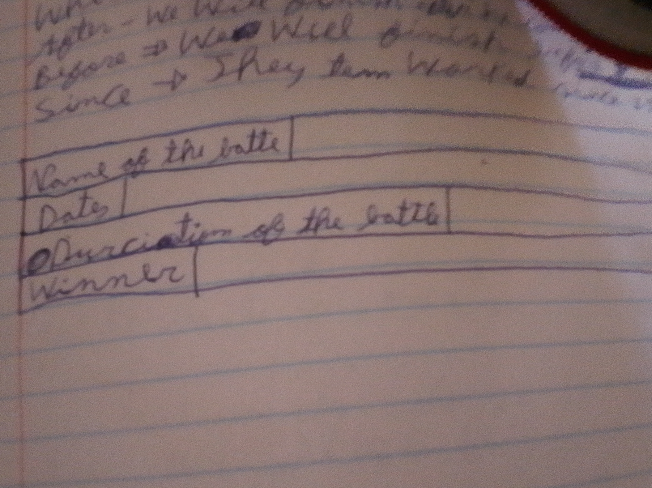 After - We Will finish
Before → We Will finish
Since → They team Worked
Name of the batte
Dates
Durciation of the battle
Winner